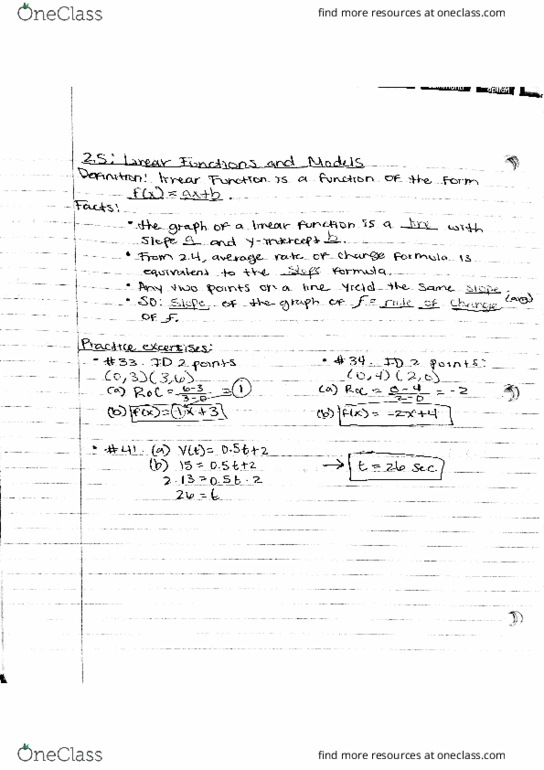 OneClass
find more resources at oneclass.com
2.5: Linear Functions and Models
Definition: linear Function is a function of the form
f(x) = ax+b.
Facts:
• the graph of a linear function is a line with
slope a and y-intercept b.
• From 2.4, average rate of change formula is
equivalent to the slope formula.
• Any two points on a line yield the same slope.
• SO: Slope of the graph of f = rate of change (avg)
of f.
Practice excertises:
• #33. ID 2 points
(0,3)(3,6)
(a) ROC = 6-3/3-0 = 1
(b) f(x) = 1x+3
• #34. ID 2 points:
(0,4)(2,0)
(a) ROC = 0-4/2-0 = -2
(b) f(x) = -2x+4
• #41. (a) V(t) = 0.5t+2
(b) 15 = 0.5t+2
2·13 = 0.5t·2
26 = t
→ t = 26 sec
OneClass
find more resources at oneclass.com